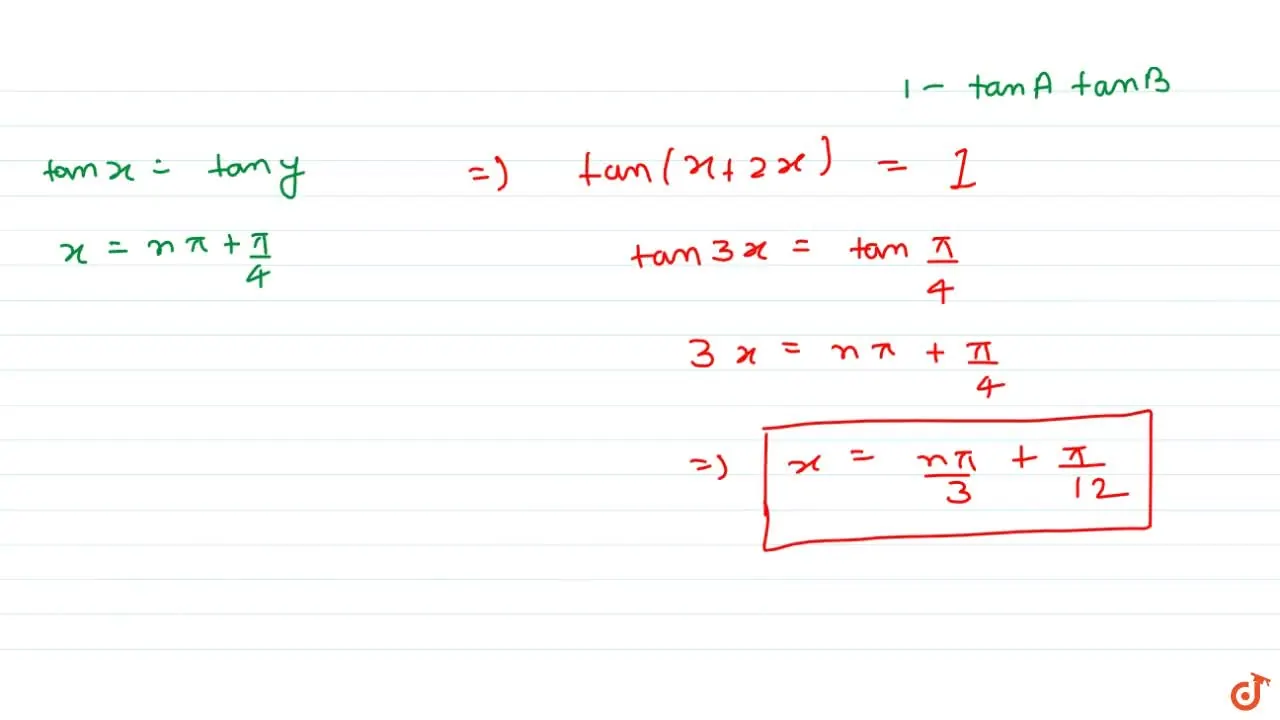 1 - tanA tanB
tan x = tan y
x = nπ + π/4
=) tan(x + 2x) = 1
tan 3x = tan π/4
3x = nπ + π/4
=) x = nπ/3 + π/12